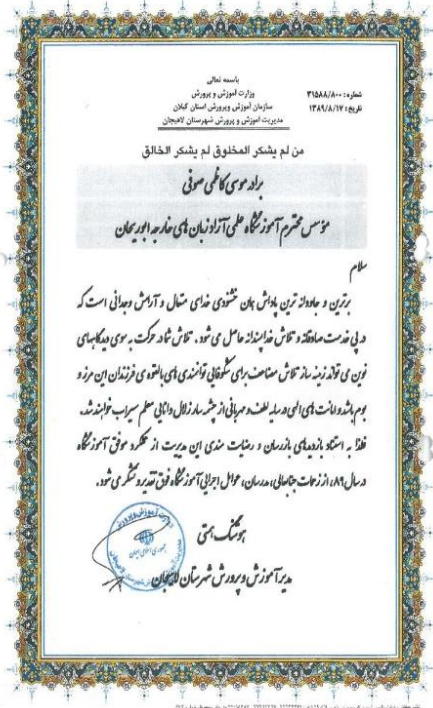 باسمه تعالی
وزارت آموزش و پرورش
سازمان آموزش وپرورش استان گیلان
مدیریت آموزش و پرورش شهرستان لاهیجان
شماره: ۳۹۵۸۸/۸۰۰
تاریخ: ۱۳۸۹/۸/۱۷
من لم یشکر المخلوق لم یشکر الخالق
برادر موسی کاظمی صوفی
مؤسس محترم آموزشگاه علمی آزاد زبان های خارجه ابوریحان
سلام
برترین و جاودانه ترین پاداش همان خشنودی خدای متعال و آرامش وجدانی است که
در پی خدمت صادقانه و تلاش خداپسندانه حاصل می شود. تلاش شما در حرکت به سوی دیدگاههای
نوین می تواند زمینه ساز تلاش مضاعف برای شکوفایی توانمندی های بالقوه ی فرزندان این مرز و
بوم باشد و امانت های الهی در سایه لطف و مهربانی از چشمه سار زلال دانایی معلم سیراب خواهند شد.
فلذا به استناد بازدیدهای بازرسان و رضایت مندی این مدیریت از عملکرد موفق آموزشگاه
در سال ۸۹، از زحمات جنابعالی، مدرسان، عوامل اجرایی آموزشگاه فوق تقدیر و تشکر می شود.
هوشنگ همتی
مدیر آموزش و پرورش شهرستان لاهیجان
جمهوری اسلامی ایران